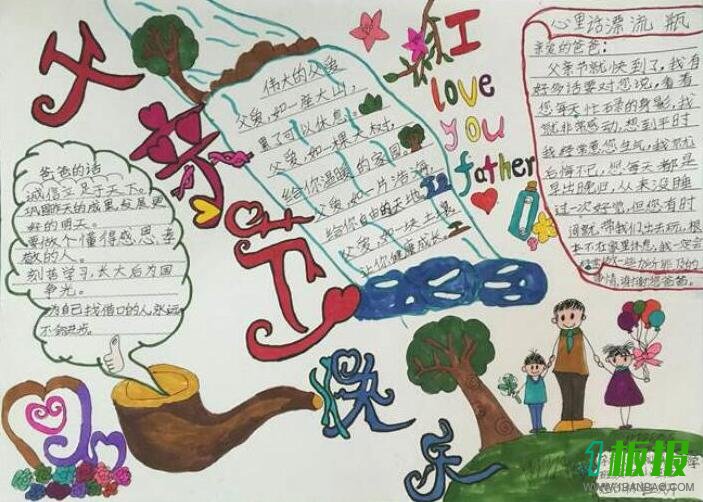 父亲节快乐
爸爸的话
诚信立足于天下。
巩固昨天的成果,发展更
好的明天。
要做个懂得感恩,孝
敬的人。
刻苦学习,长大后为国
争光。
为自己找借口的人永远
不会进步。
伟大的父爱
父爱,如一座大山,
累了可以休息。
父爱,如一棵大树,
给你温暖的家园。
父爱,如一片浩海,
给你自由的天地。
父爱,如一块土壤,
让你健康成长。
I
love
you
father
心里话漂流瓶
亲爱的爸爸:
父亲节就快到了,我有
好多话要对您说,看着
您每天忙碌的身影,我
就非常感动,想到平时
我经常惹您生气,我就
后悔不已,您每天都是
早出晚归,从来没睡
过一次好觉,但您有时
间就带我们出去玩,根
本不在家里休息,我一定会
做一些力所能及的
事情,谢谢您爸爸。
1板报
WWW.1BANBAO.COM